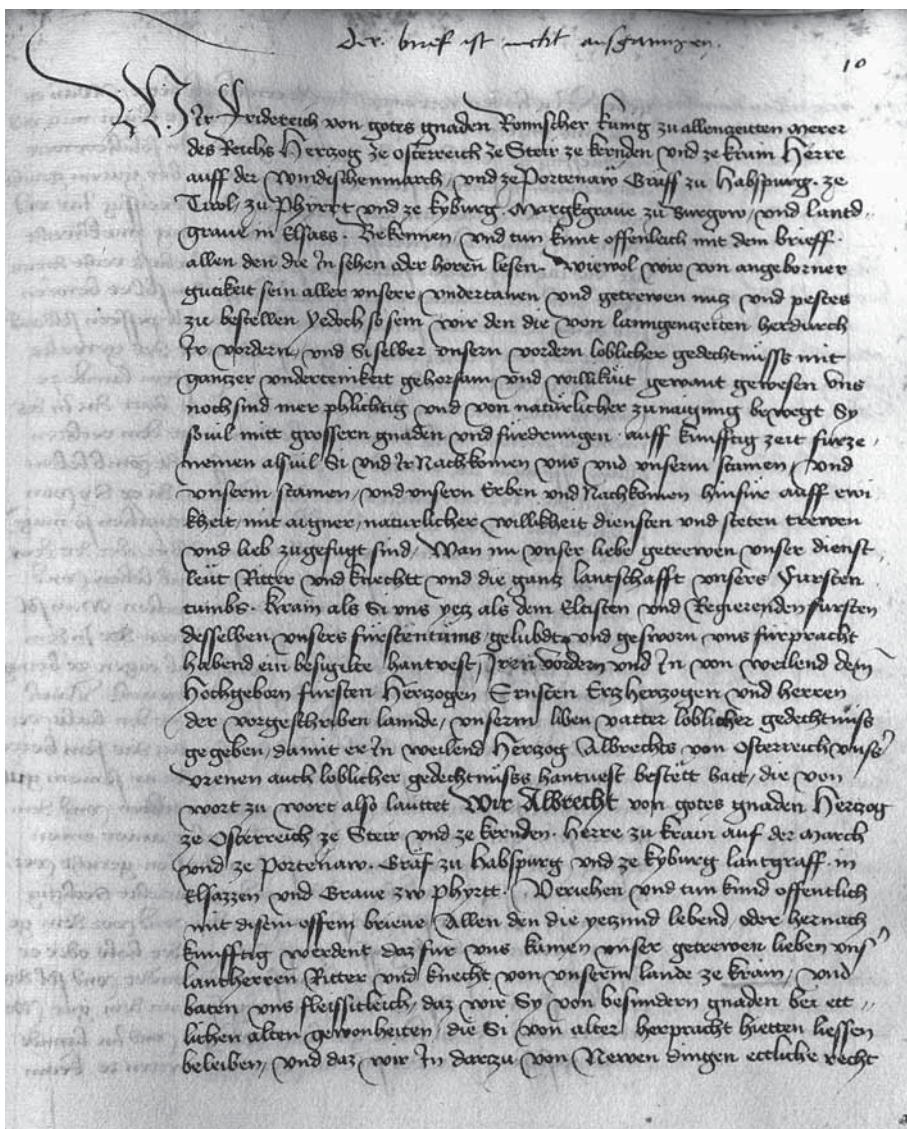 Der brief ist nicht ausgangen.
10
Wir Fridereich von gotes gnaden Romischer kunig zu allenzeitten merer
des Reichs Herczog ze Osterreich ze Steir ze kernden und ze krain Herre
auff der windischenmarch, und ze Portenaw Graff zu Habspurg. ze
Tirol, zu Phyrrt und ze kyburg. Margkgrave zu Burgow, und lantd„
grave in Elsass. Bekennen, und tun kunt offenleich mit dem brieff.
allen den die In sehen oder horen lesen. wiewol wir von angeborner
gutikeit sein aller unserr undertanen und getrewen nucz und pestes
zu bestellen yedoch so sein wir den die von lanngenzeiten herdurch
Ir vordern, und Si selber unsern vordern loblicher gedechtnuss mit
ganczer undertenikeit gehorsam und willikait gewant gewesen uns
noch sind mer phlichtig und von naturlicher zunaigung bewegt Sy
souil mitt grossern gnaden und furdrungen auff kunfftig zeit furze,
nemen alsuil Si und Ir Nachkomen uns und unserm stamen, und
unserm stamen, und unsern Erben und Nachkomen hinfur auff ewi
kheit, mit aigner, naturlicher willikheit diensten und steten trewen
und lieb zugefugt sind, Wan nu unser liebe getrewen unser dienst
leut Ritter und knechtt und die gancz lantschafft unsers Fursten
tumbs. Krain als Si uns yecz als dem Eltisten und Regierenden fursten
desselben unsers furstentums, gelubdt und gesworn uns furpracht
habend ein besigilte hantvest, Iren vordern und In von weilend dem
Hochgeborn fursten Herczogen Ernsten Erzherczogen und herren
der vorgeschriben lannde, unserm liben vatter loblicher gedechtnuss
gegeben, damit er In weilend Herczog Albrechts von Osterreich unsers
urenen auch loblicher gedechtnuss hantvest bestett hatt, die von
wort zu wort also lauttet Wir Albrecht von gotes gnaden Herczog
ze Osterreich ze Steir und ze kernden. Herre zu krain auf der March
und ze Portenaw. Graf zu Habspurg und ze kyburg lantgraff. in
Elsazzen und Grave zw phyrtt. Veriehen und tun kund offentlich
mit disem offem brieue, Allen den die yeczund lebend, oder hernach
kunfftig werdent, daz fur uns kamen unser getrewen lieben uns
lantherren Ritter und knecht von unserm lande ze krain, und
baten uns fleissicleich, daz wir Sy von besundern gnaden bei ett„
lichen alten gewonheiten, die Si von alter herpracht hietten liessen
beleiben, und daz wir In darczu von Newen dingen ettliche recht